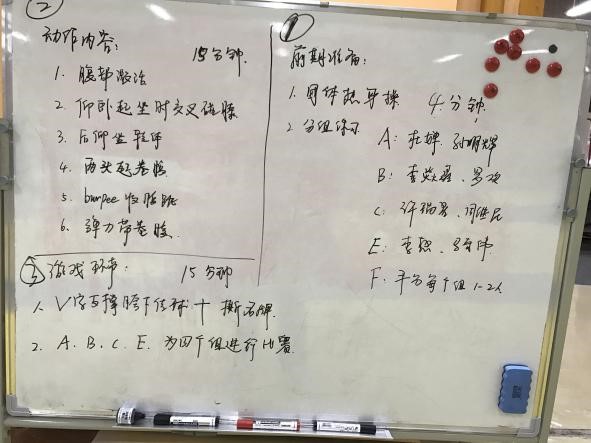 ①
前期准备:
1. 团体热身操 4分钟
2. 分组
A: 杜坤、孙明辉
B: 李
C: 许瑞
E: 李
F: 平分每个组1-2人
②
动作内容: 15分钟.
1. 腹部激活
2. 仰卧起坐时交叉碰膝
3. 后仰坐
4. 两头起卷腹
5. burpee收腹跳
6. 弹力带卷腹
③ 游戏环节: 15分钟
1. V字支撑胯下传球十撕名牌.
2. A. B. C. E. 为四个组进行比赛.